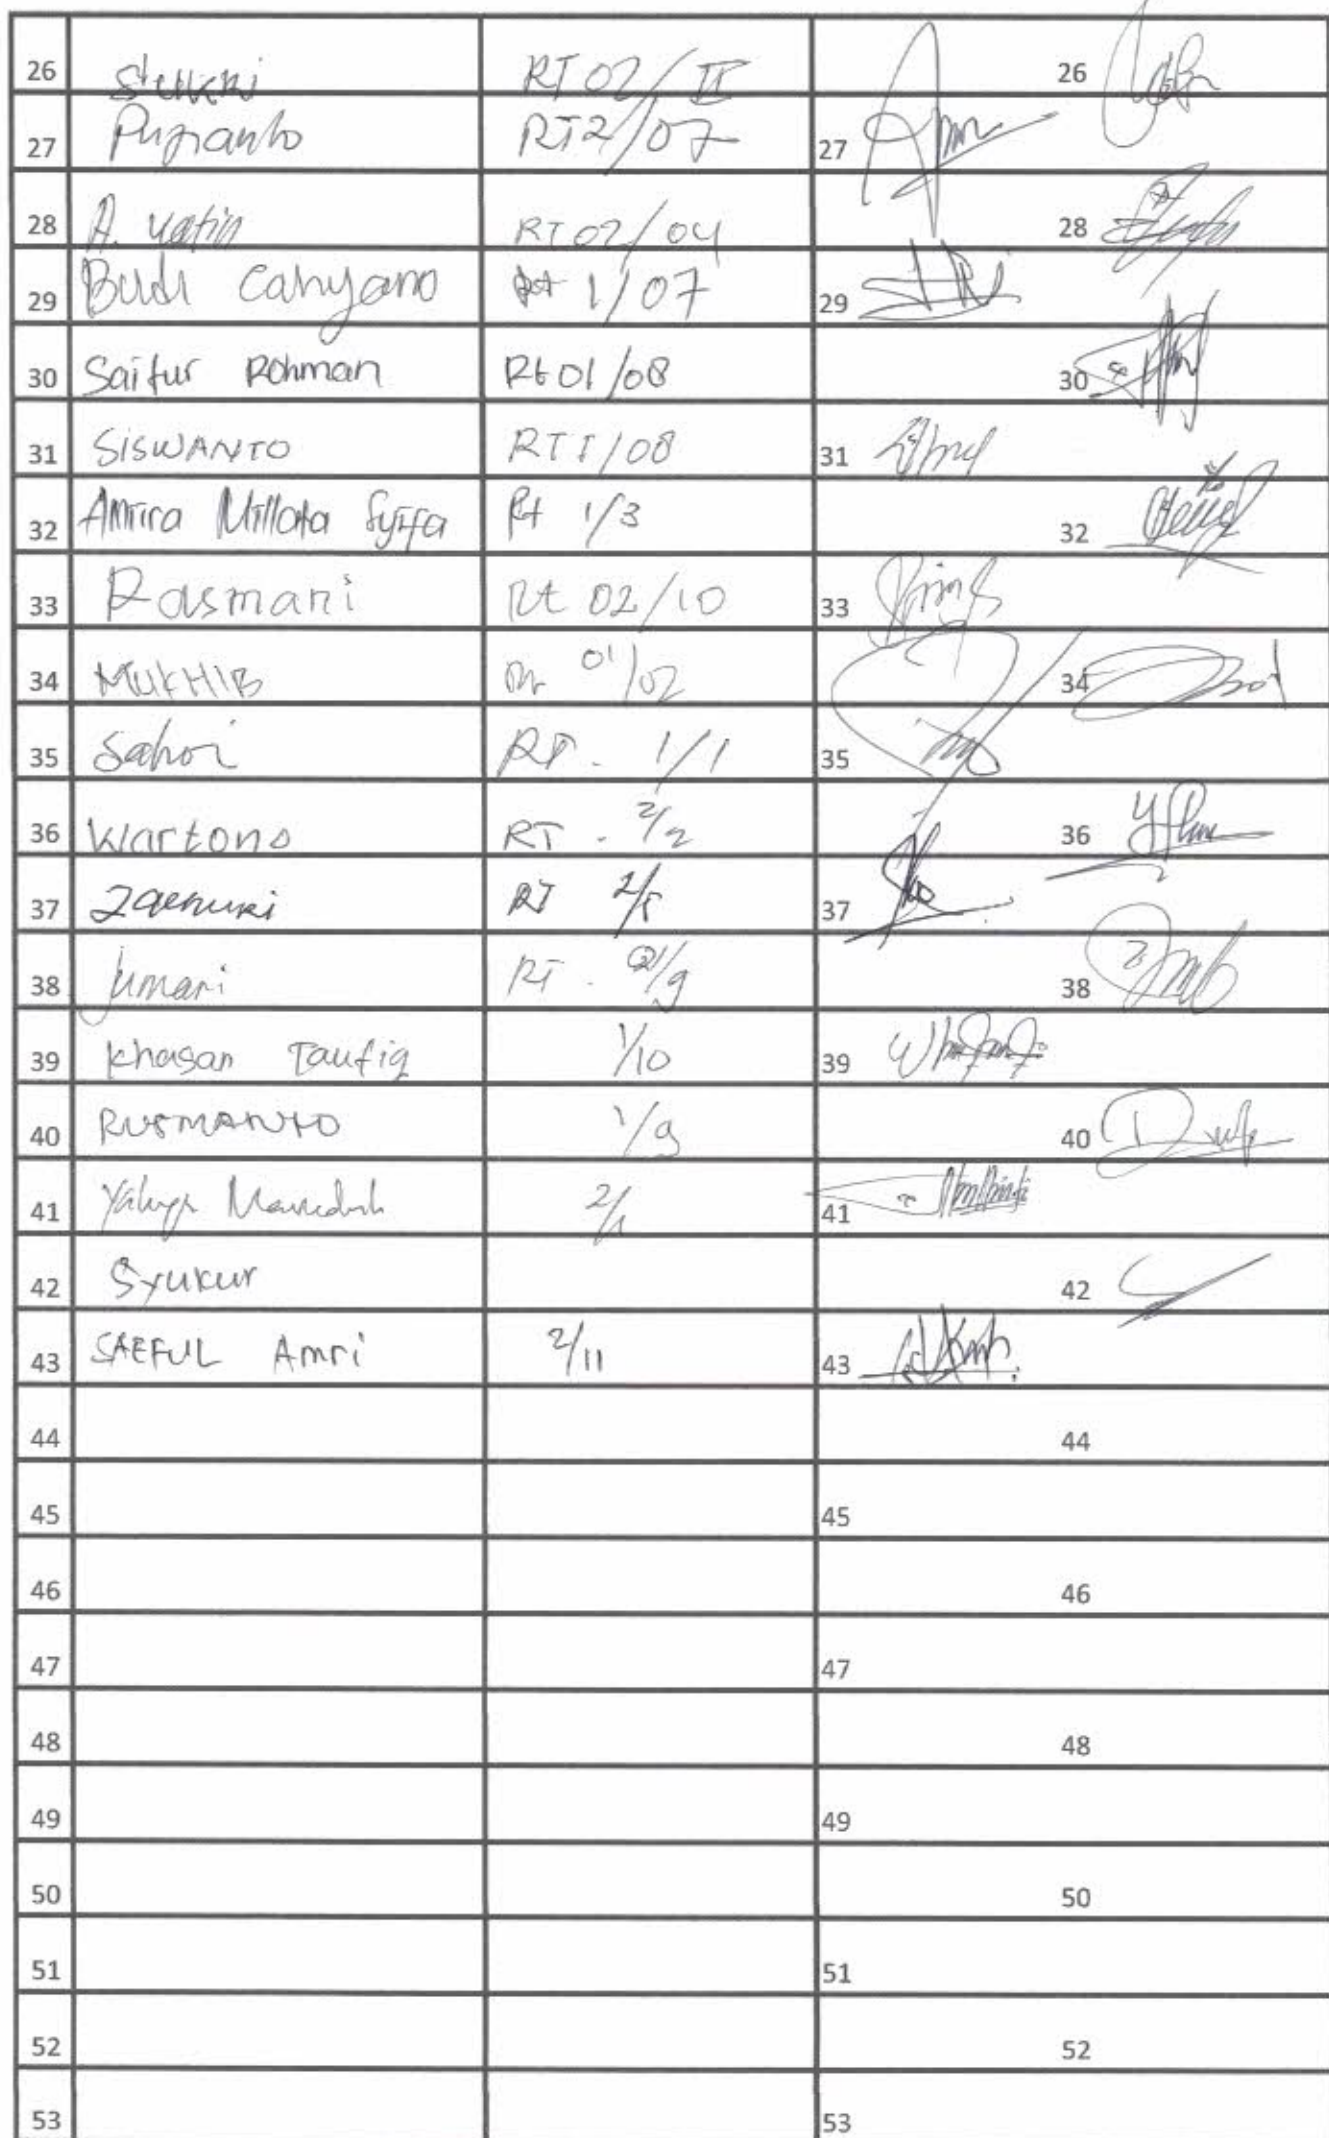 26 RT 02/II 26
27 Pujianto RT2/07 27
28 A. RT 02/04 28
29 Budi Cahyano Rt 1/07 29
30 Saifur Rohman Rt 01/08 30
31 SISWANTO RT I/08 31
32 Amira Millata Syifa Rt 1/3 32
33 Rasmani Rt 02/10 33
34 MUKHIB 01/02 34
35 RT. 1/1 35
36 Wartono RT. 2/2 36
37 Zaenuri RT 37
38 jumari RT. 38
39 Khasan Taufiq 1/10 39
40 RUSMANTO 1/9 40
41 2/1 41
42 Syukur 42
43 SAEFUL Amri 2/11 43
44 44
45 45
46 46
47 47
48 48
49 49
50 50
51 51
52 52
53 53